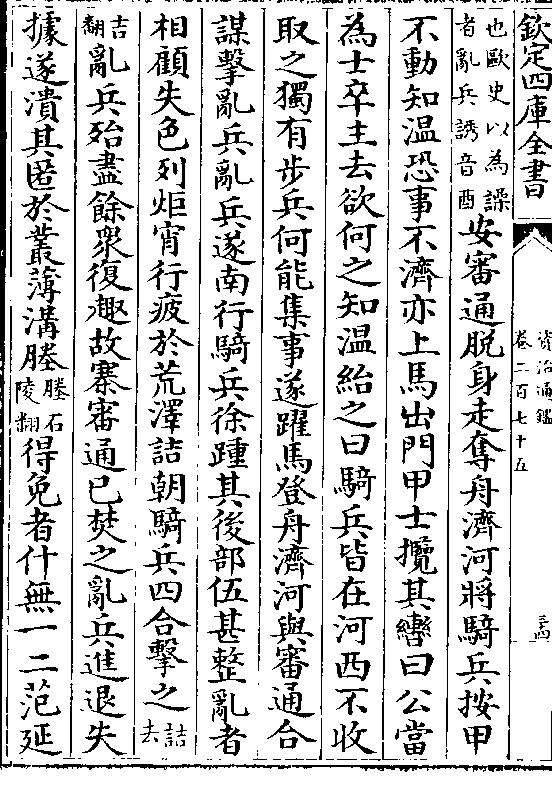 欽定四庫全書
資治通鑑
卷二百七十五
也歐史以為譟
者亂兵誘音酉
安審通脫身走奪舟濟河將騎兵按甲
不動知温恐事不濟亦上馬出門甲士攬其轡曰公當
為士卒主去欲何之知温紿之曰騎兵皆在河西不收
取之獨有步兵何能集事遂躍馬登舟濟河與審通合
謀擊亂兵亂兵遂南行騎兵徐踵其後部伍甚整亂者
相顧失色列炬宵行疲於荒澤詰朝騎兵四合擊之
詰
去
吉
翻
亂兵殆盡餘衆復趣故寨審通已焚之亂兵進退失
據遂潰其匿於叢薄溝塍
塍石
陵翻
得免者什無一二范延